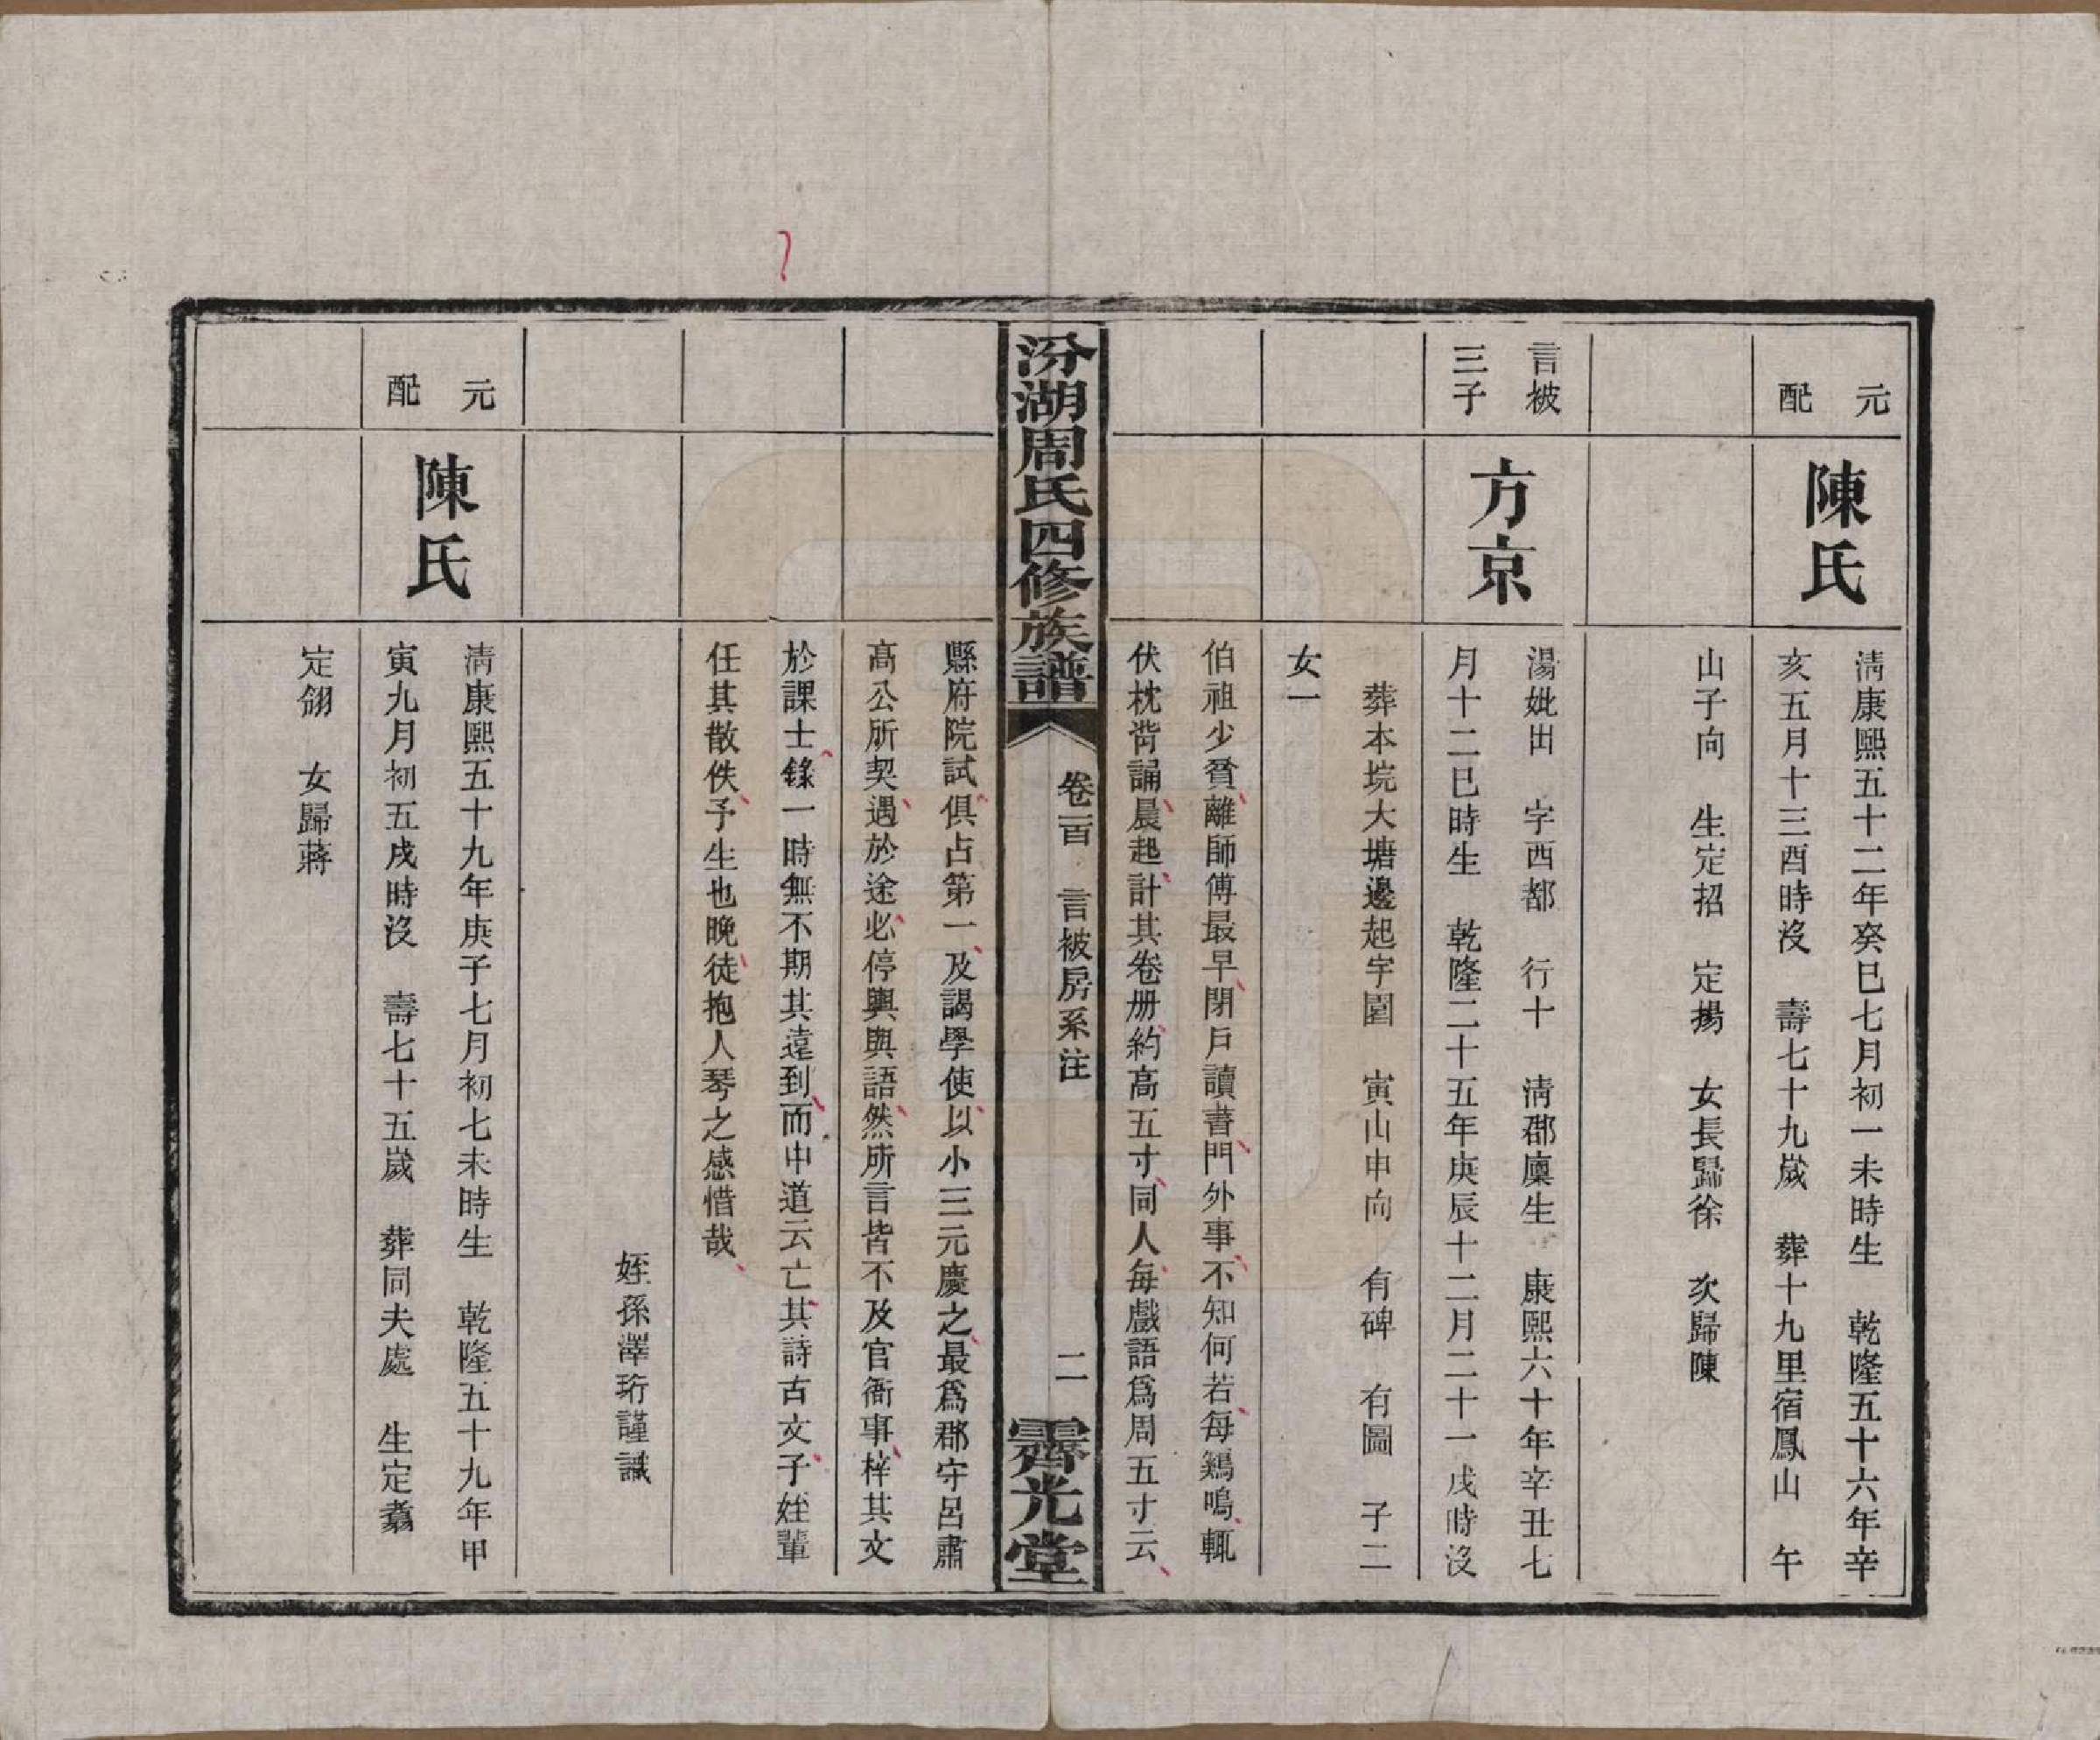 元
配
陳氏
淸康熙五十二年癸巳七月初一未時生 乾隆五十六年辛
亥五月十三酉時沒 壽七十九歲 葬十九里宿鳳山 午
山子向 生定招 定揚 女長歸徐 次歸陳
言被
三子
方京
湯妣出 字西都 行十 淸郡廩生 康熙六十年辛丑七
月十二巳時生 乾隆二十五年庚辰十二月二十一戌時沒
葬本垸大塘邊起字圍 寅山申向 有碑 有圖 子二
女一
伯祖少貧離師傅最早閉戶讀書門外事不知何若每鷄鳴輒
伏枕背誦晨起計其卷册約高五寸同人每戲語爲周五寸云
汾湖周氏四修族譜
卷一百 言被房系注
二
霽光堂
縣府院試俱占第一及謁學使以小三元慶之最爲郡守呂肅
高公所契遇於途必停輿與語然所言皆不及官衙事梓其文
於課士錄一時無不期其遠到而中道云亡其詩古文子姪輩
任其散佚予生也晚徒抱人琴之感惜哉
姪孫澤珩謹識
元
配
陳氏
淸康熙五十九年庚子七月初七未時生 乾隆五十九年甲
寅九月初五戌時沒 壽七十五歲 葬同夫處 生定翥
定翎 女歸蔣